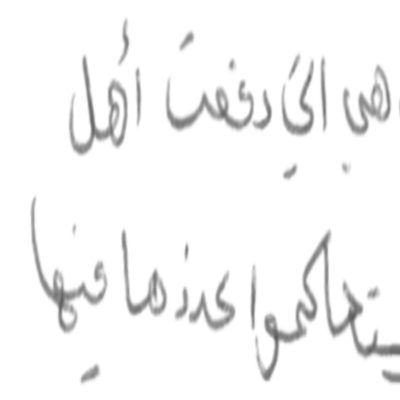 هي التي دفعت أهل
ليتحاكموا عددها فيها